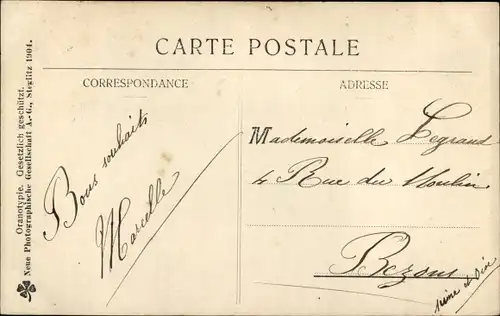 CARTE POSTALE
CORRESPONDANCE
Bons souhaits
Marcelle
ADRESSE
Mademoiselle Legrand
4 Rue du Moulin
Bezons
Seine et Oise
Oranotypie. Gesetzlich geschützt.
Neue Photographische Gesellschaft A.-G., Steglitz 1904.